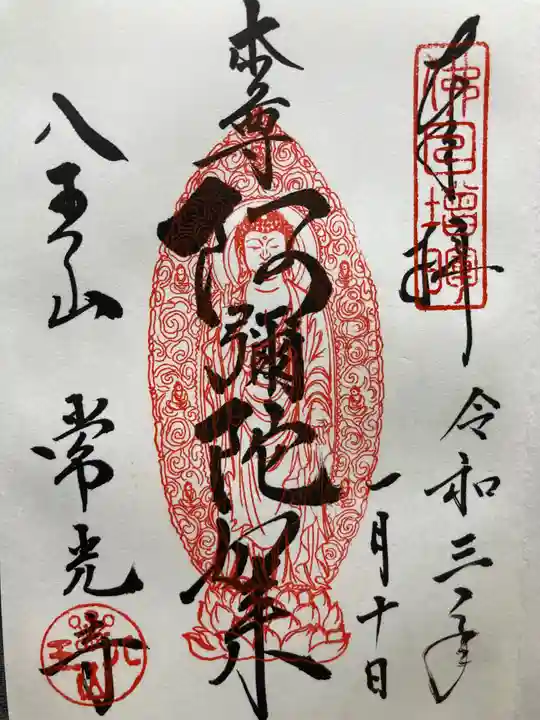 奉拝
令和三年
一月十日
本尊
阿彌陀如来
八王山
常光寺